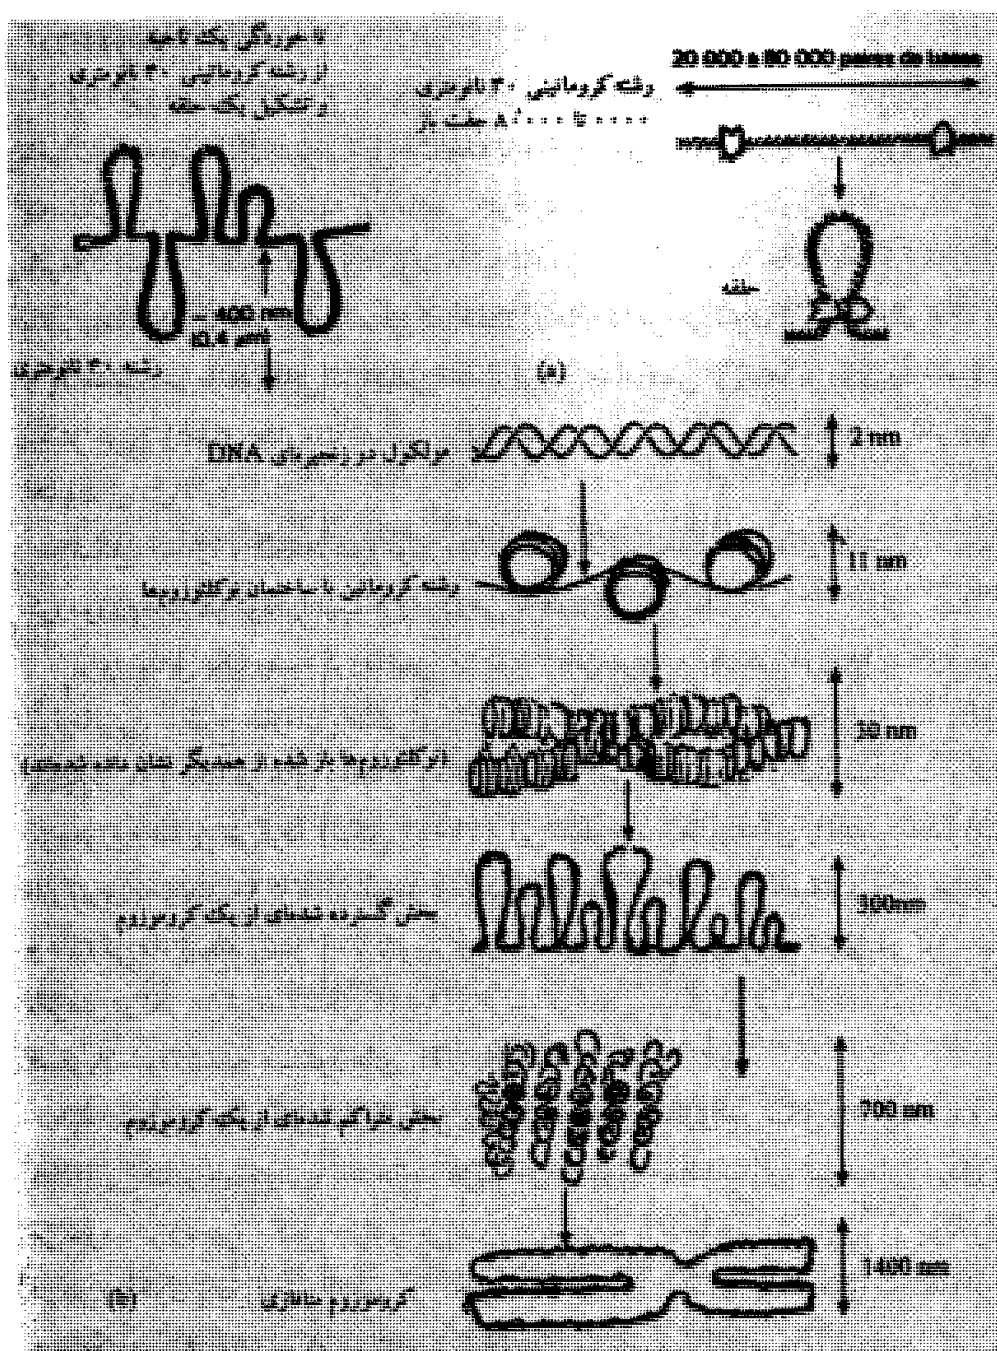 تا خوردگی یک ناحیه
از رشته کروماتینی ۳۰ نانومتری
و تشکیل یک حلقه
20 000 a 80 000 paires de bases
رشته کروماتینی ۳۰ نانومتری
تا ۸۰۰۰۰ جفت باز
حلقه
~ 400 nm
(0,4 µm)
رشته ۳۰ نانومتری
(a)
مولکول دو زنجیره‌ای DNA
2 nm
رشته کروماتین با ساختمان نوکلئوزوم‌ها
11 nm
(نوکلئوزوم‌ها باز شده از همدیگر نشان داده شده‌اند)
30 nm
بخش گسترده شده‌ای از یک کروموزوم
300nm
بخش متراکم شده‌ای از یک کروموزوم
700 nm
کروموزوم متافازی
1400 nm
(b)